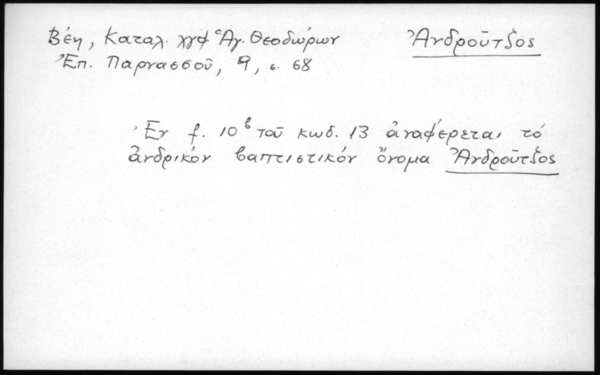 Βέη, Καταλ. χγφ Ἁγ. Θεοδώρων Ἀνδροῦτζος
Ἐπ. Παρνασσοῦ, 9, σ. 68
Ἐν f. 10β τοῦ κωδ. 13 ἀναφέρεται τό
ἀνδρικόν βαπτιστικόν ὄνομα Ἀνδροῦτζος